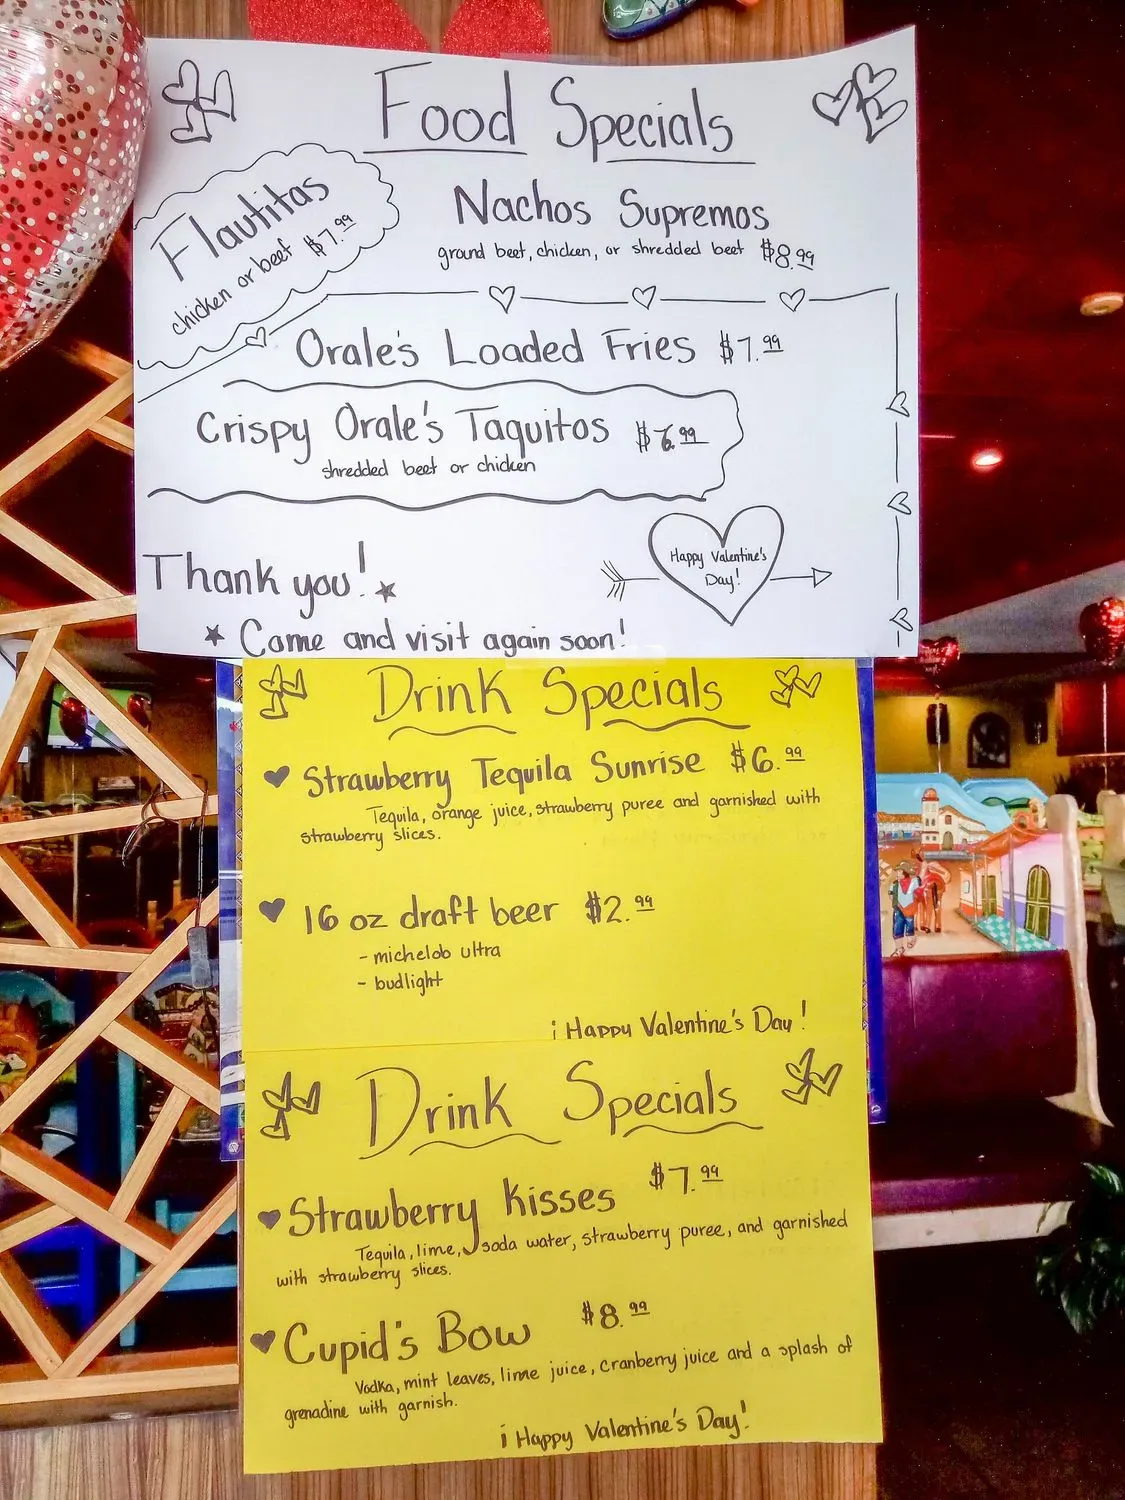 Food Specials
Flautitas
chicken or beef $7.99
Nachos Supremos
ground beef, chicken, or shredded beef $8.99
Orale's Loaded Fries $7.99
Crispy Orale's Taquitos $6.99
shredded beef or chicken
Happy Valentine's
Day!
Thank you!
Come and visit again soon!
Drink Specials
Strawberry Tequila Sunrise $6.99
Tequila, orange juice, strawberry puree and garnished with
strawberry slices.
16 oz draft beer $2.99
- michelob ultra
- budlight
¡Happy Valentine's Day!
Drink Specials
Strawberry Kisses $7.99
Tequila, lime, soda water, strawberry puree, and garnished
with strawberry slices.
Cupid's Bow $8.99
Vodka, mint leaves, lime juice, cranberry juice and a splash of
grenadine with garnish.
¡Happy Valentine's Day!